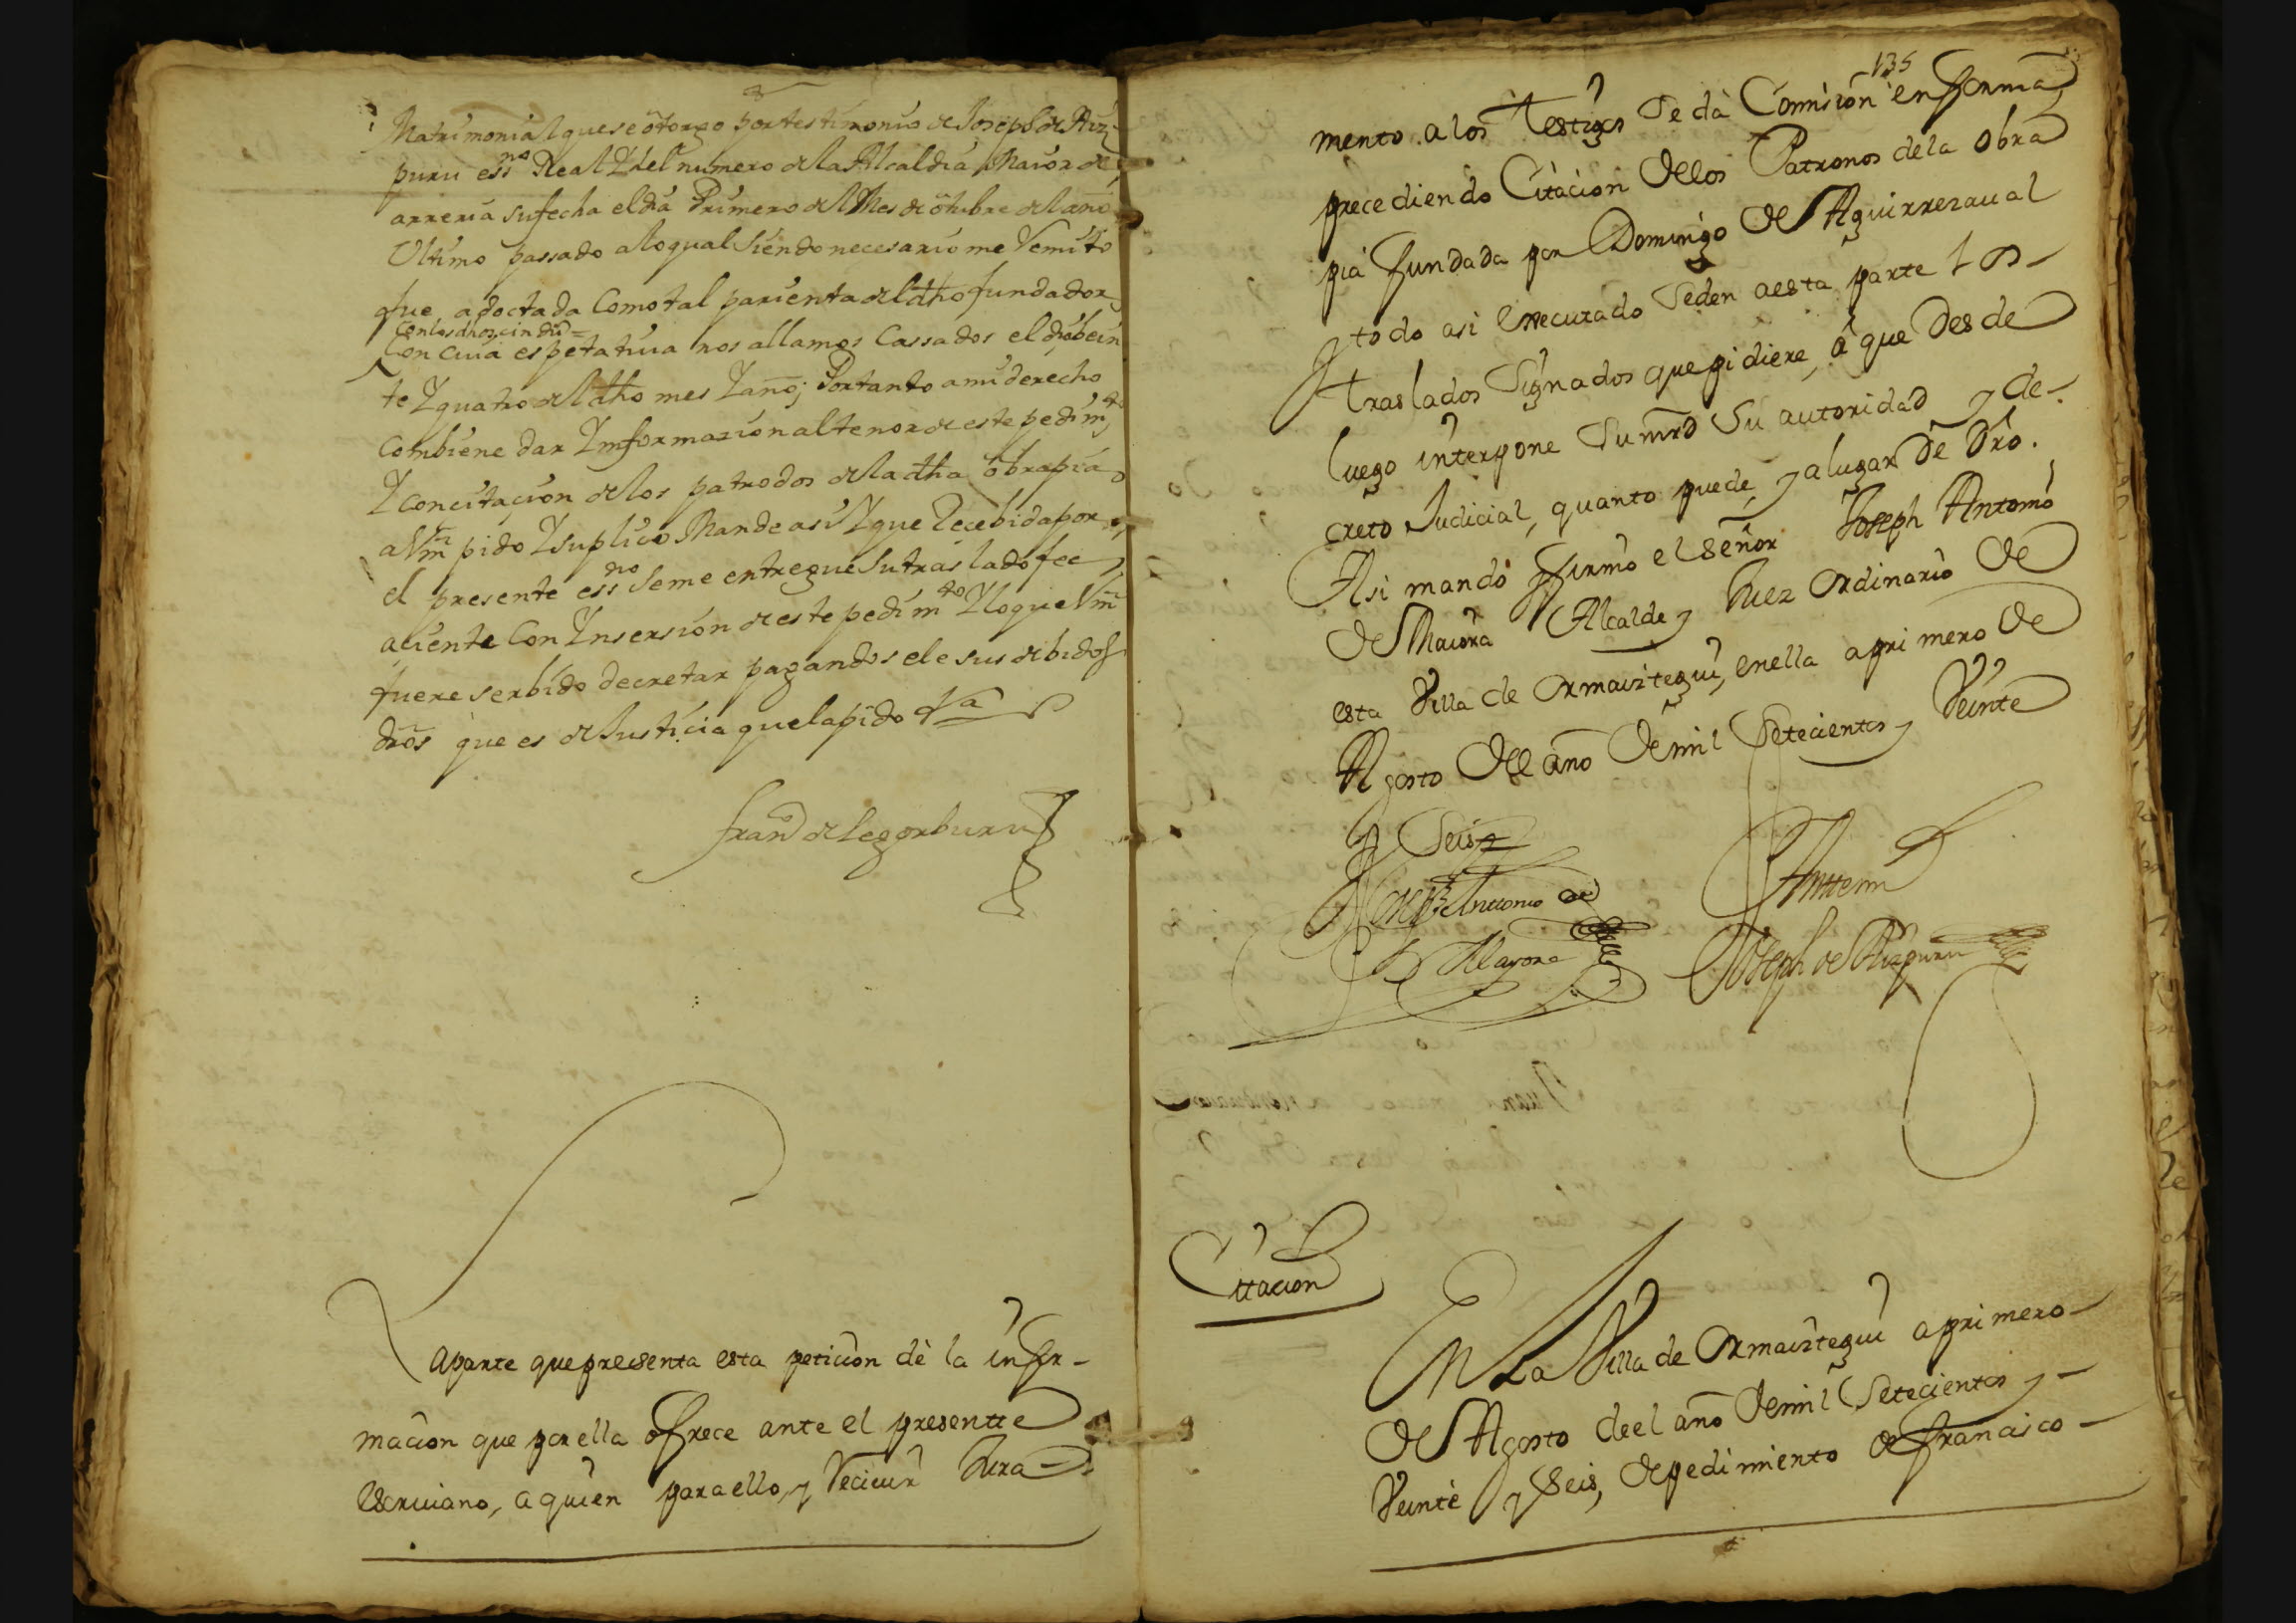 Matrimonial que se otorgo por testimonio de Joseph de Aiz-
puru essno Real Y del numero de la Alcaldia Maior de
arreria su fecha el dia Primero del Mes de otubre del año
Ultimo passado alo qual siendo necesario me Remito
fue adoctada Como tal parienta del dho fundador
Con los dhos cin du=
Con cuia espetatiua nos allamos Cassados el dia bein
te Y quatro del dho mes Y año; Portanto a mi derecho
Combiene dar Ynformazion al tenor de este pedimto
Y con citaçion de los patrodos de la dha obra pia
a Vm pido Y suplico Mande asi Y que Recebida por
el presente essno se me entregue su traslado fee
aciente Con Ynsersion de este pedimto Y lo que Vm
fuere serbido decretar pagandosele sus debidos
dros que es de Justicia que la pido Va
Frando de Legorburu
La parte que presenta esta peticion dè la infor-
macion que por ella ofrece ante el presentte
escriuano, a quien para ello, y Reciuir Jura-
135
mento a los testigos se dà Comision en forma,
precediendo Citacion de los Patronos de la obra
pia fundada por Domingo de Aguirrezaual
y todo asi executado se den a esta parte los
traslados signados que pidiere, à que desde
luego interpone su mrd su autoridad y de-
creto Judicial, quanto puede, y a lugar de dro.
Asi mandò y firmò el señor Joseph Antonio
de Maiora Alcalde y Juez ordinario de
esta Villa de ormaiztegui, en ella a primero de
Agosto de el año de mil setecientos y Veinte
y seis
Joseph Anttonio de
Mayora
Antte mi
Joseph de Aizpuru
Cittacion
En La Villa de ormaiztegui a primero
de Agosto de el año de mil setecientos y
Veinte y seis, de pedimiento de francisco